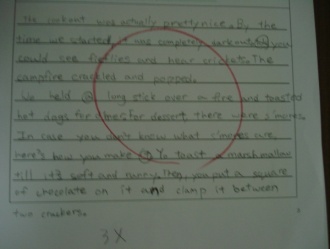 The cookout was actually pretty nice. By the
time we started it was completely dark out you
could see fireflies and hear crickets. The
campfire crackled and popped.
We held a long stick over a fire and toasted
hot dogs for dessert there were s'mores.
In case you don't know what s'mores are,
here's how you make it. You toast a marshmallow
till it's soft and runny, then, you put a square
of chocolate on it and clamp it between
two crackers.
3X